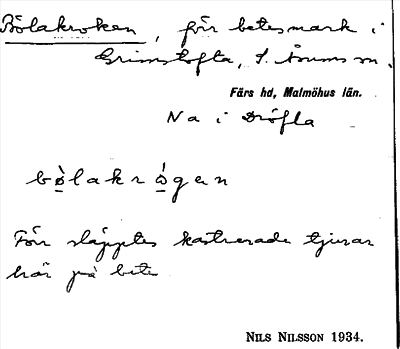 Bölakroken, förr betesmark i
Grimstofta, S. Åsums sn.
Färs hd, Malmöhus län.
Na i Dröfla
bø̀lakrǫ́gen
Förr släpptes kastrerade tjurar
här på bete
NILS NILSSON 1934.